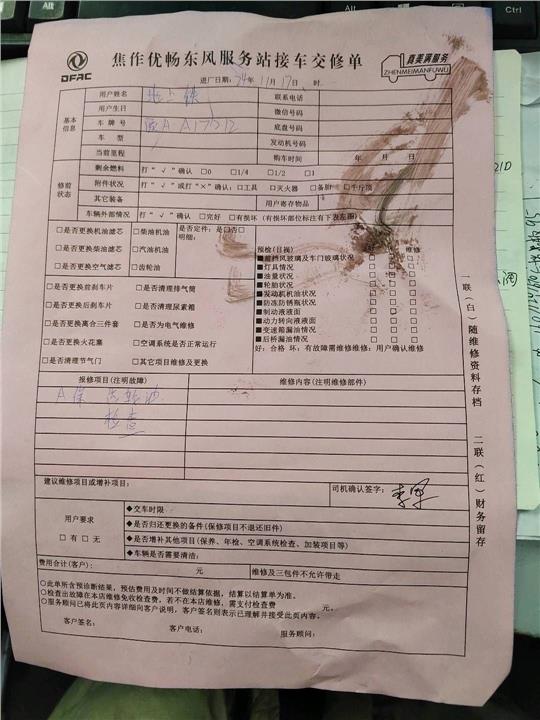 DFAC
焦作优畅东风服务站接车交修单
真美满服务
ZHENMEIMANFUWU
进厂日期: 24年 11月 17日 时
基本信息
用户姓名 联系电话
用户生日 微信号码
车牌号 底盘号码
车型 发动机号码
当前里程 购车时间 年 月 日
修前状态
剩余燃料 打“√”确认 □0 □1/4 □1/2 □1
附件状况 打“√”或打“×”确认: □工具 □灭火器 □备胎 □千斤顶
其它装备 用户寄存物品
车辆外部情况 打“√”确认 □完好 □有损坏 (有损坏部位标注有下表左图)
□是否更换机油滤芯 □柴油机油
□是否更换柴油滤芯 □汽油机油
□是否更换空气滤芯 □齿轮油
是否定件: □是□否
明细:
□是否更换前刹车片 □是否清理排气筒
□是否更换后刹车片 □是否清理尿素箱
□是否更换离合三件套 □是否为电气维修
□是否更换火花塞 □空调系统是否正常运行
□是否清理节气门 □其它项目维修及更换
预检(目视) 维修
■前挡风玻璃及车门玻璃状况
■灯具情况
■油量状况
■轮胎状况
■发动机机油状况
■防冻防锈瓶状况
■制动液液面
■动力转向液液面
■变速箱漏油情况
■后桥漏油情况
好: 合格 坏: 有故障需维修维修: 用户确认维修
报修项目(注明故障) 维修内容(注明维修部件)
A保
检查
建议维修项目或增补项目:
司机确认签字:
用户要求
□有 □无
◆交车时限
◆是否归还更换的备件(保修项目不退还旧件)
◆是否增补其他项目(保养、年检、空调系统检查、加装项目等)
◆车辆是否需要清洁:
费用合计(客户): 元 维修及三包件不允许带走
○此单所含预诊断结果,预估费用及时间不做结算依据,结算以结算单为准。
○检查出故障在本店维修免收检查费,若不在本店维修,需支付检查费 元。
○服务顾问已将此页内容详细向客户说明,客户签名则表示已理解并接受此页内容。
客户签名: 客户电话: 服务顾问:
一联(白)随维修资料存档
二联(红)财务留存
Ctrl